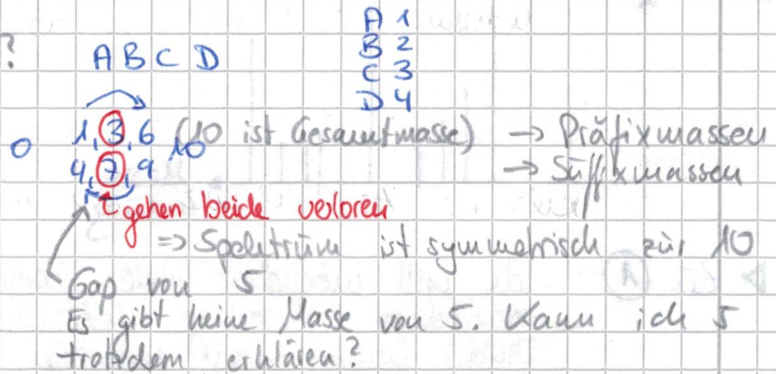 ?
A B C D
A 1
B 2
C 3
D 4
0 1, 3, 6 10 (10 ist Gesamtmasse) → Präfixmassen
4, 7, 9 → Suffixmassen
gehen beide verloren
⇒ Spektrum ist symmetrisch zur 10
Gap von 5
Es gibt keine Masse von 5. Kann ich 5
trotzdem erklären?